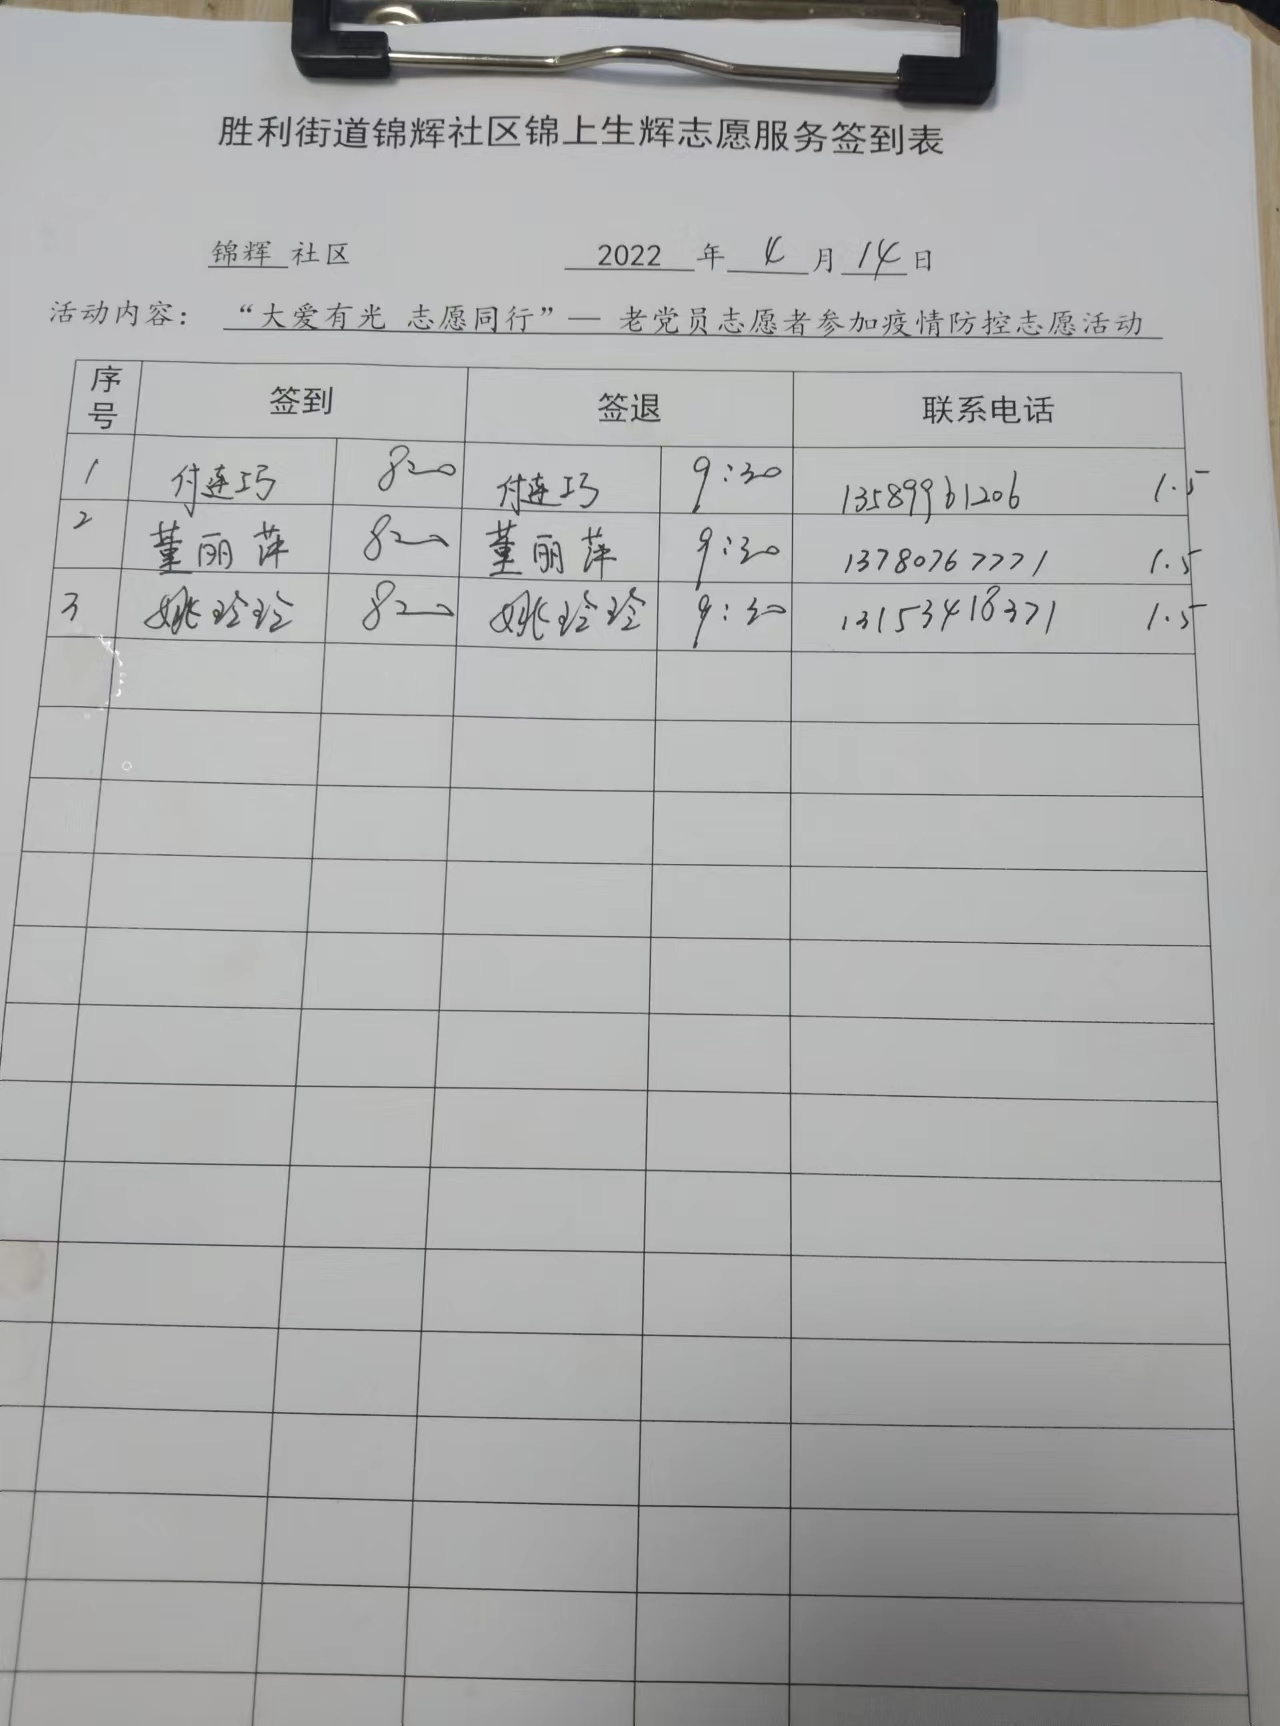 胜利街道锦辉社区锦上生辉志愿服务签到表
锦辉 社区 2022 年 4 月 14 日
活动内容： “大爱有光 志愿同行”— 老党员志愿者参加疫情防控志愿活动
序号 签到 签退 联系电话
1 付连巧 8:00 付连巧 9:30 13589961206 1.5
2 董丽萍 8:00 董丽萍 9:30 13780767771 1.5
3 姚玲玲 8:00 姚玲玲 9:30 13153418371 1.5